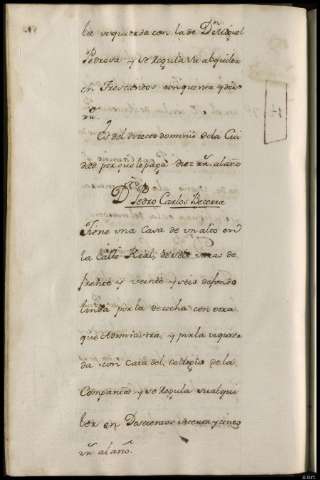 la izquierda con la de Dn Miguel
Pedrosa y se regula su alquiler
en Trescientos cinquenta y dos
rrs
Es del directo dominio de la Ciu
dad por que le paga diez rrs al año
Dn Pedro Carlos Becerra
Tiene una Casa de un alto en
la Calle Real, de varas de
frente y veinte y seis de fondo
linda por la derecha con otra
que administra, y por la izquier
da con Casa del Collegio de la
Compañia y se regula su alqui
ler en Doscientos setenta y cinco
rrs al año.